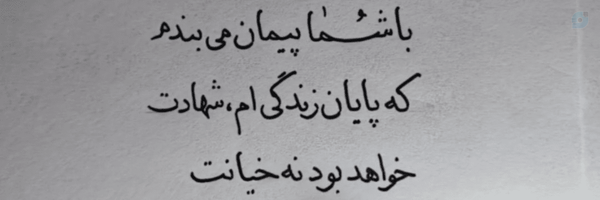 با شُما پیمان می بندم
که پایان زندگی ام، شهادت
خواهد بود نه خیانت